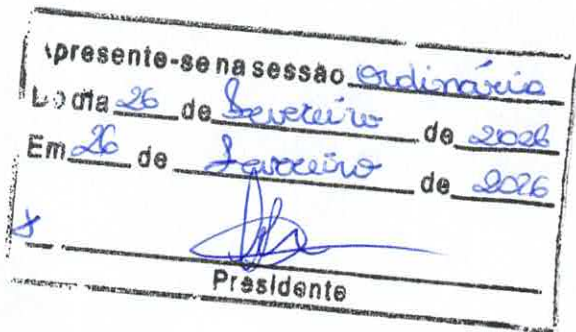 presente-se na sessão ordinária
Do dia 26 de Fevereiro de 2026
Em 26 de Fevereiro de 2026
Presidente